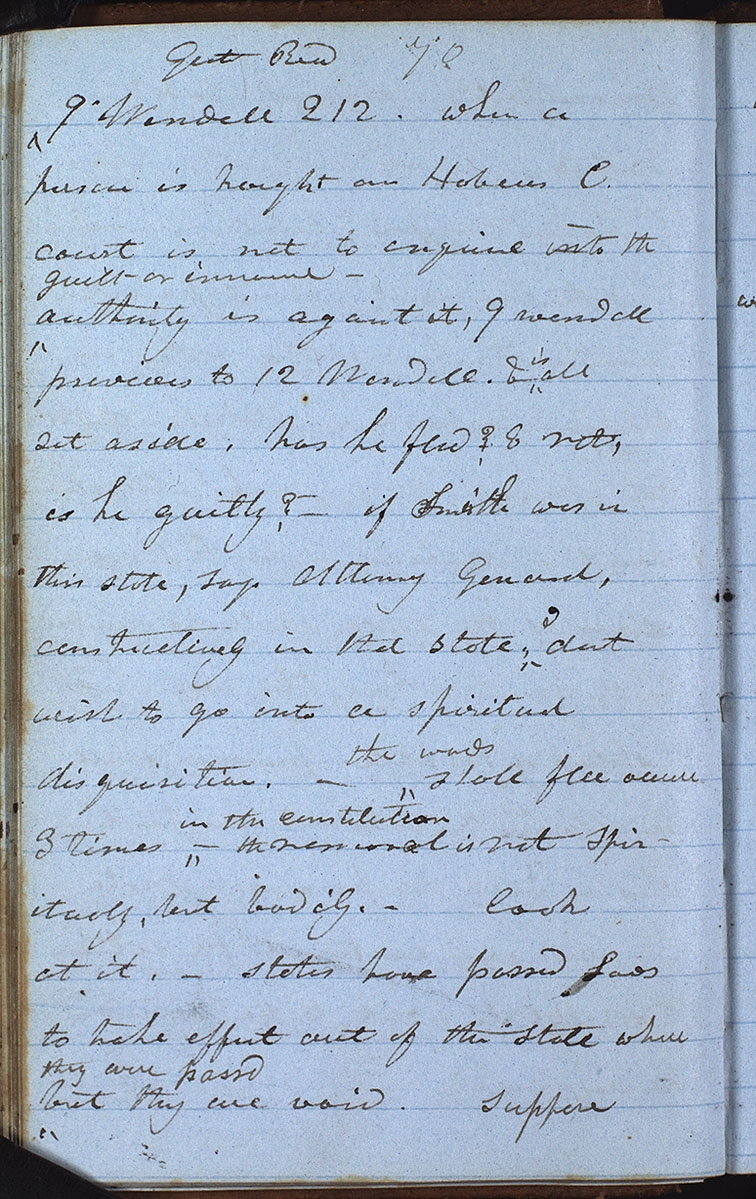 9 Wendell 212. when a
person is brought on Habeus C.
court is not to enquire into the
guilt or innocence –
authority is against it, 9 wendell
previous to 12 Wendell. & is all
set aside. has he fled? & not,
is he guilty? – if Smith was in
this state, says Attorney General,
constructively in that state? dont
wish to go into a spiritual
disquisition. – the words shall flee occurs
3 times in the constitution – the removal is not spir-
itualy, but bodily. – Look
at it. – states have passed Laws
to take effect out of the State where
they were passd
but they are void. suppose